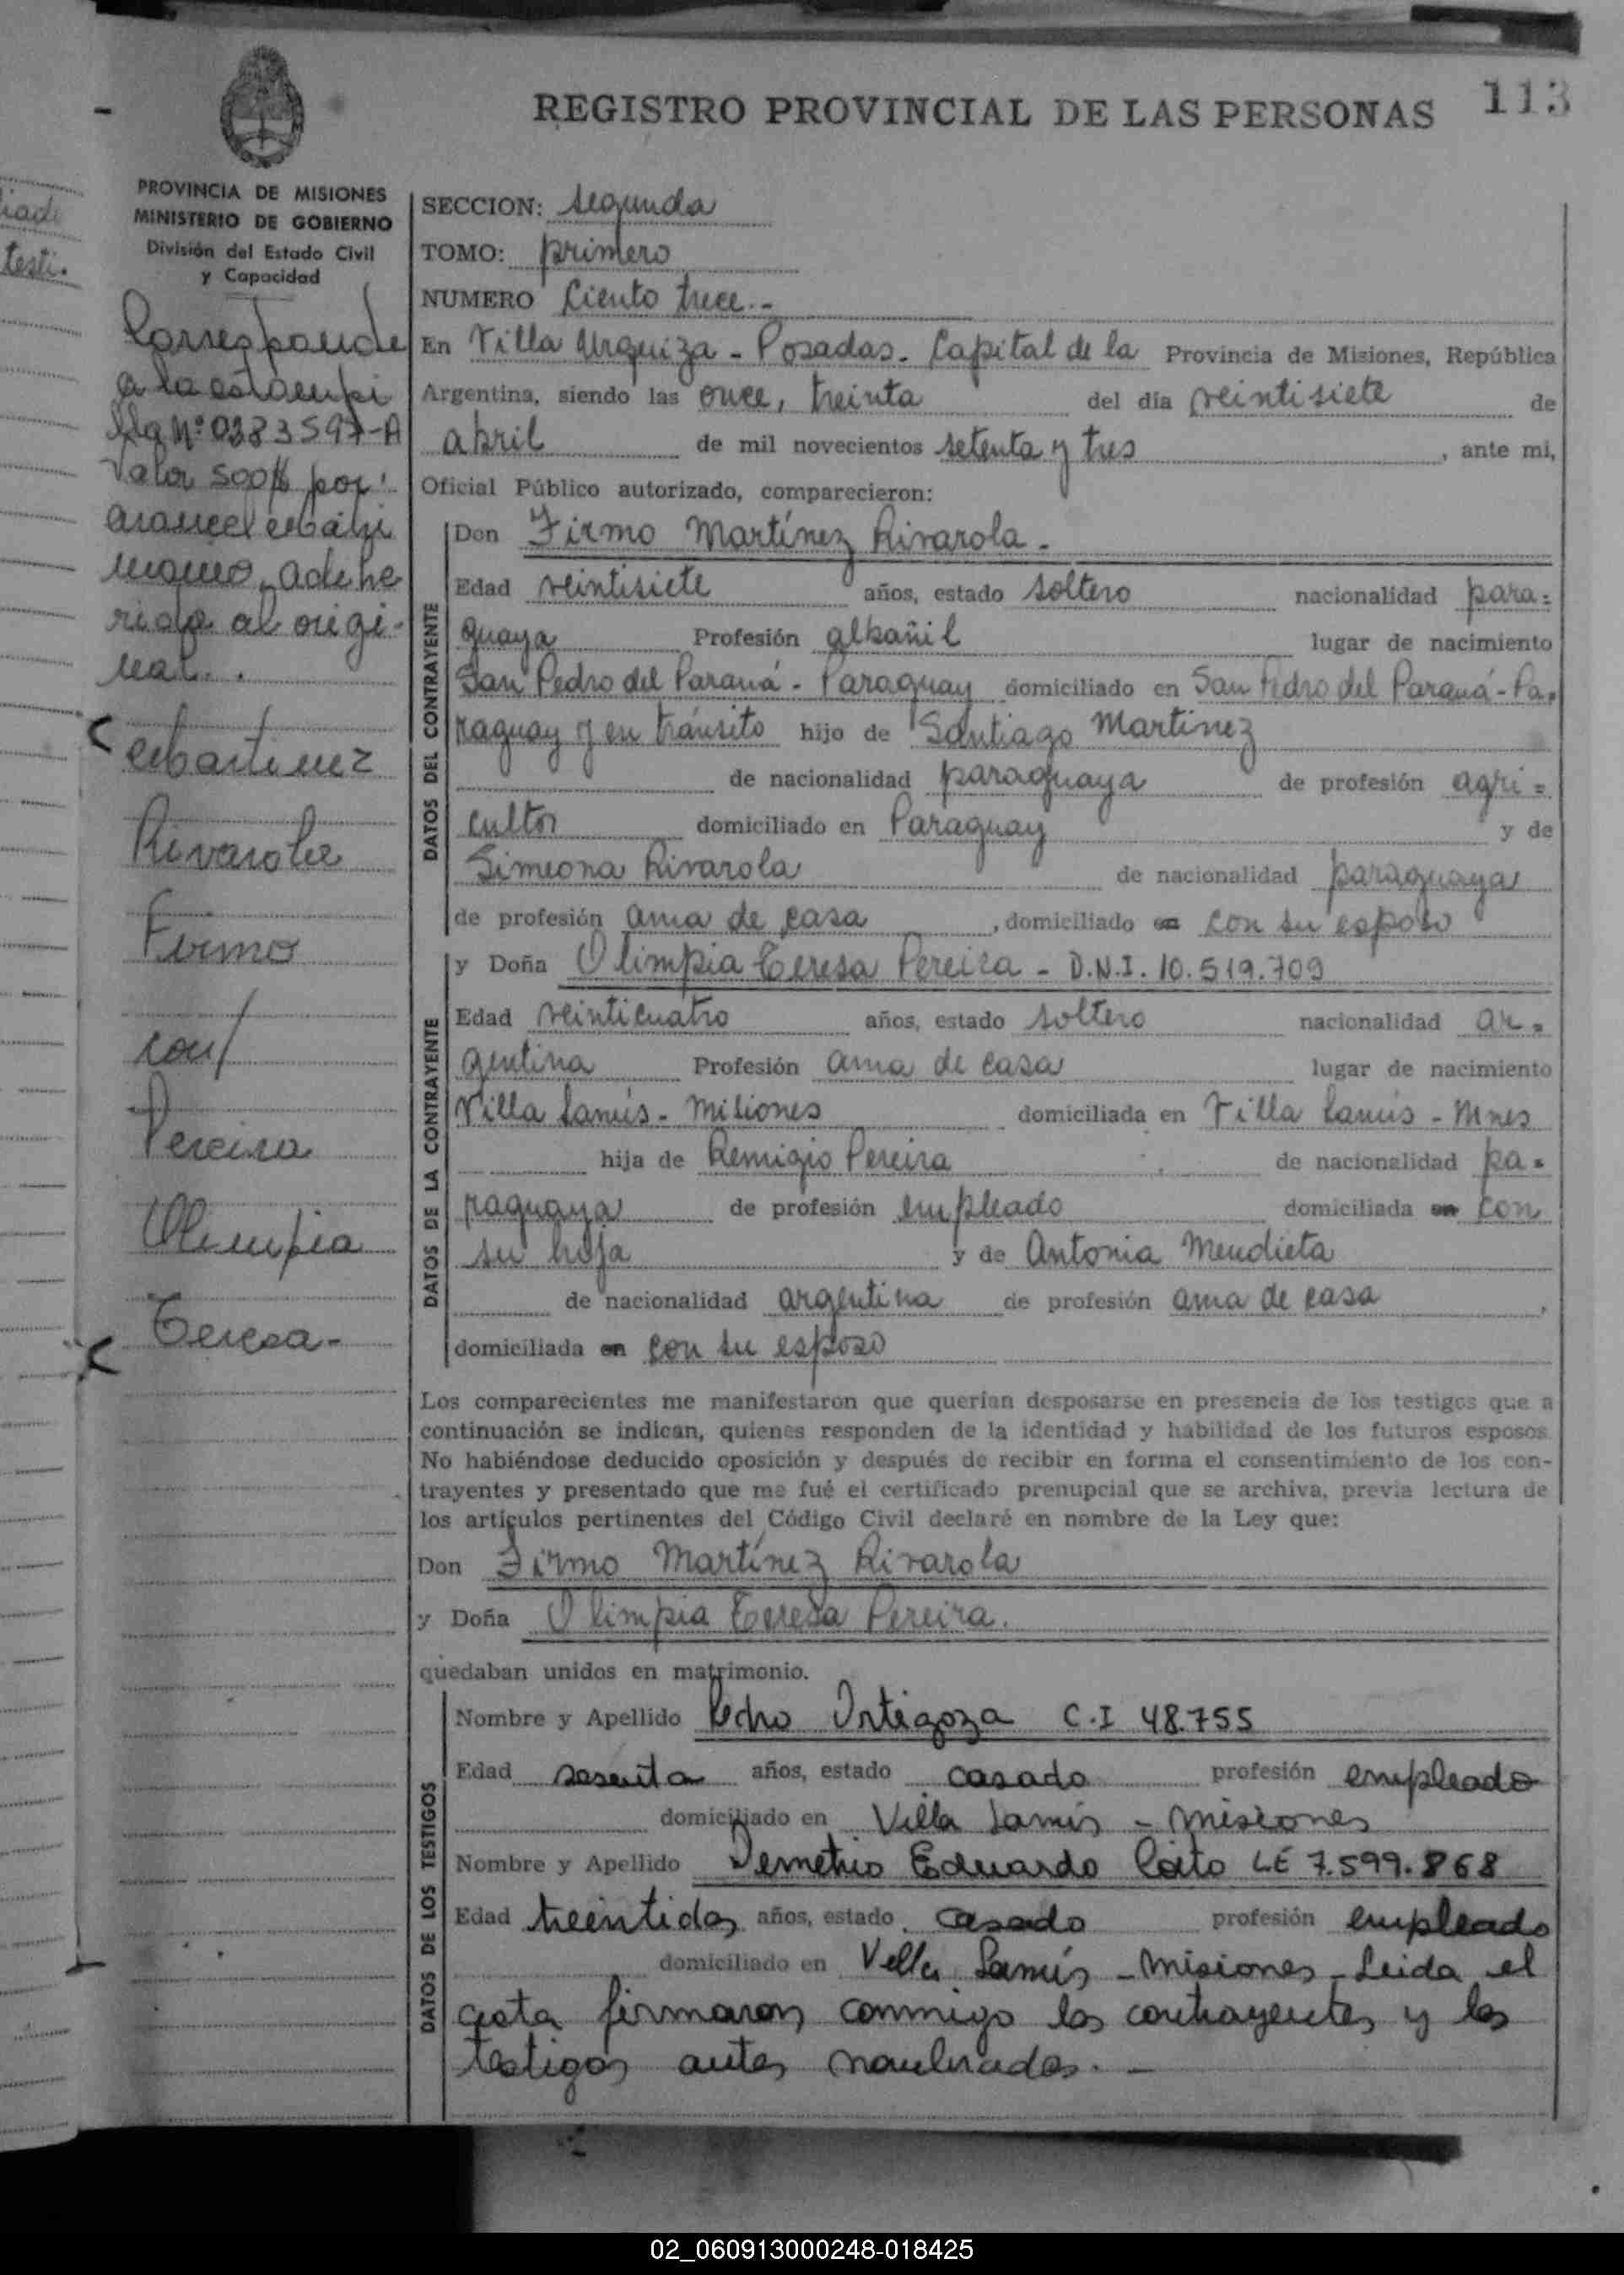 REGISTRO PROVINCIAL DE LAS PERSONAS 113
PROVINCIA DE MISIONES
MINISTERIO DE GOBIERNO
División del Estado Civil
y Capacidad
Corresponde
a la estampi
lla Nº 0383597-A
Valor 500$ por
arancel máxi
mo, adhe
rida al origi-
nal..
Martinez
Rivarola
Firmo
con/
Pereira
Olimpia
Teresa-
iadi
testi.
SECCION: segunda
TOMO: primero
NUMERO Ciento trece.-
En Villa Urquiza - Posadas - Capital de la Provincia de Misiones, República
Argentina, siendo las once, treinta del día veintisiete de
abril de mil novecientos setenta y tres, ante mi,
Oficial Público autorizado, comparecieron:
DATOS DEL CONTRAYENTE
Don Firmo Martínez Rivarola.-
Edad veintisiete años, estado soltero nacionalidad para=
guaya Profesión albañil lugar de nacimiento
San Pedro del Paraná - Paraguay domiciliado en San Pedro del Paraná - Pa.
raguay y en tránsito hijo de Santiago Martínez
de nacionalidad paraguaya de profesión agri=
cultor domiciliado en Paraguay y de
Simeona Rivarola de nacionalidad paraguaya
de profesión ama de casa, domiciliado en con su esposo
DATOS DE LA CONTRAYENTE
y Doña Olimpia Teresa Pereira - D.N.I. 10.519.709
Edad veinticuatro años, estado soltero nacionalidad ar=
gentina Profesión ama de casa lugar de nacimiento
Villa Lanús - Misiones domiciliada en Villa Lanús - Mnes
hija de Remigio Pereira de nacionalidad pa=
raguaya de profesión empleado domiciliada en con
su hija y de Antonia Mendieta
de nacionalidad argentina de profesión ama de casa,
domiciliada en con su esposo
Los comparecientes me manifestaron que querían desposarse en presencia de los testigos que a
continuación se indican, quienes responden de la identidad y habilidad de los futuros esposos.
No habiéndose deducido oposición y después de recibir en forma el consentimiento de los con-
trayentes y presentado que me fué el certificado prenupcial que se archiva, previa lectura de
los artículos pertinentes del Código Civil declaré en nombre de la Ley que:
Don Firmo Martínez Rivarola
y Doña Olimpia Teresa Pereira.
quedaban unidos en matrimonio.
DATOS DE LOS TESTIGOS
Nombre y Apellido Pedro Ortigoza C.I 48.755
Edad sesenta años, estado casado profesión empleado
domiciliado en Villa Lanús - Misiones
Nombre y Apellido Demetrio Eduardo LE 7.599.868
Edad treintidos años, estado casado profesión empleado
domiciliado en Villa Lanús - Misiones - Leida el
acta firmaron conmigo los contrayentes y los
testigos antes nombrados. -
02_060913000248-018425